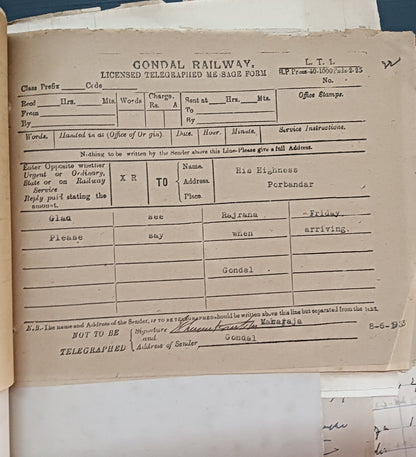 GONDAL RAILWAY.
L. T. 1.
LICENSED TELEGRAPHED MESSAGE FORM
No.
Class Prefix Code
Office Stamps.
Recd Hrs. Mts. Words Charge. Rs. A. Sent at Hrs. Mts.
From To
By By
Words. Handed in at (Office of Origin). Date. Hour. Minute. Service Instructions.
Nothing to be written by the Sender above this Line-Please give a full Address.
Enter Opposite whether Urgent or Ordinary, State or on Railway Service Reply paid stating the amount.
X R
TO { Name. Address. Place.
His Highness
Porbandar
Glad see Rajrana Friday
Please say when arriving.
Gondal
N.B.-The name and Address of the Sender, IF TO BE TELEGRAPHED should be written above this line but separated from the text.
NOT TO BE TELEGRAPHED { Signature and Address of Sender
Maharaja
Gondal